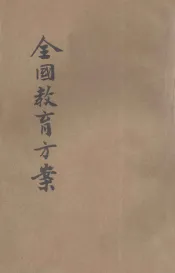 全國教育方案